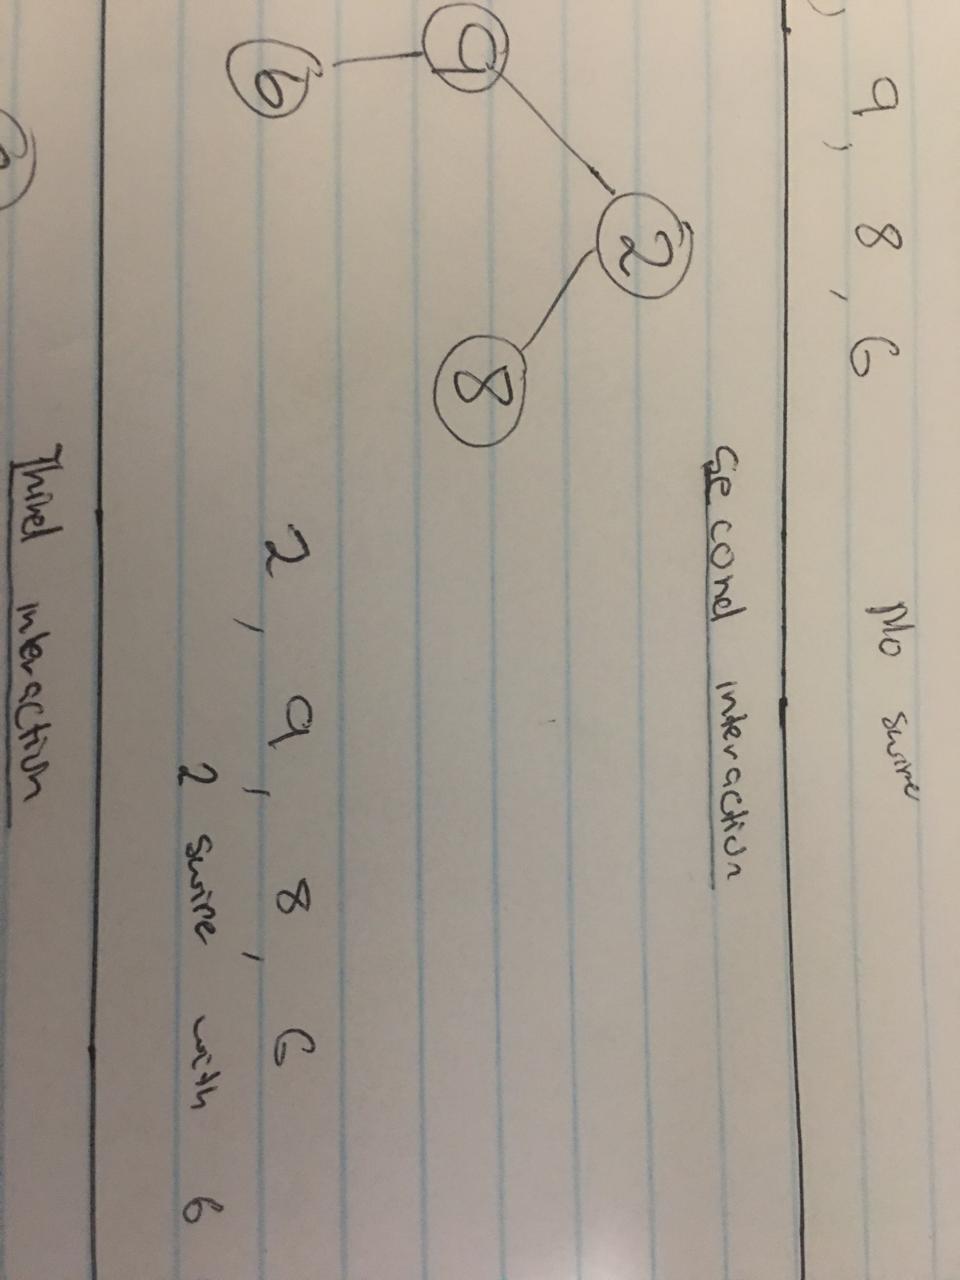 9, 8, 6 No swire
Second interaction
2
9 8
6
2, 9, 8, 6
2 swire with 6
Third interaction